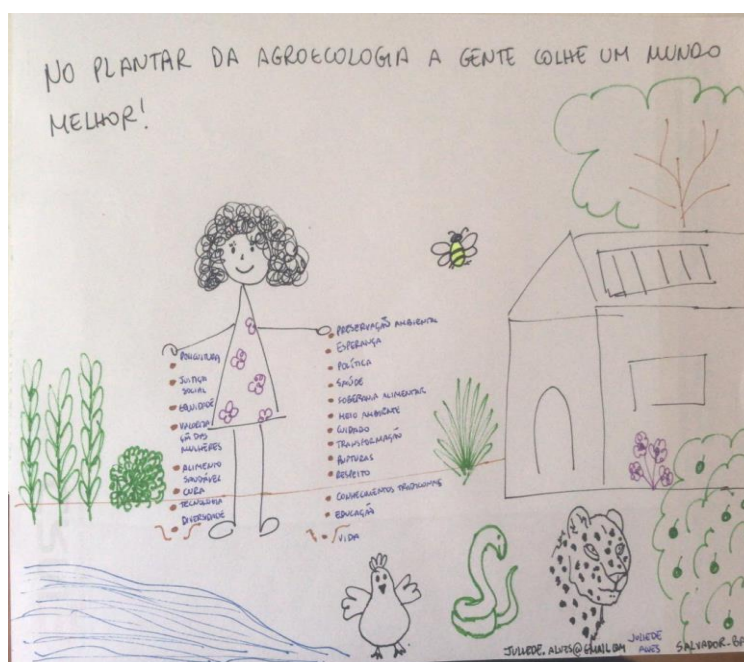 NO PLANTAR DA AGROECOLOGIA A GENTE COLHE UM MUNDO
MELHOR!
POLICULTURA
JUSTIÇA
SOCIAL
EQUIDADE
VALORIZA
ÇÃO DAS
MULHERES
ALIMENTO
SAUDÁVEL
CURA
TECNOLOGIA
DIVERSIDADE
PRESERVAÇÃO AMBIENTAL
ESPERANÇA
POLÍTICA
SAÚDE
SOBERANIA ALIMENTAR
MEIO AMBIENTE
CUIDADO
TRANSFORMAÇÃO
RUPTURAS
RESPEITO
CONHECIMENTOS TRADICIONAIS
EDUCAÇÃO
VIDA
JULIEDE.ALVES@GMAIL.COM
JULIEDE
ALVES
SALVADOR-BA